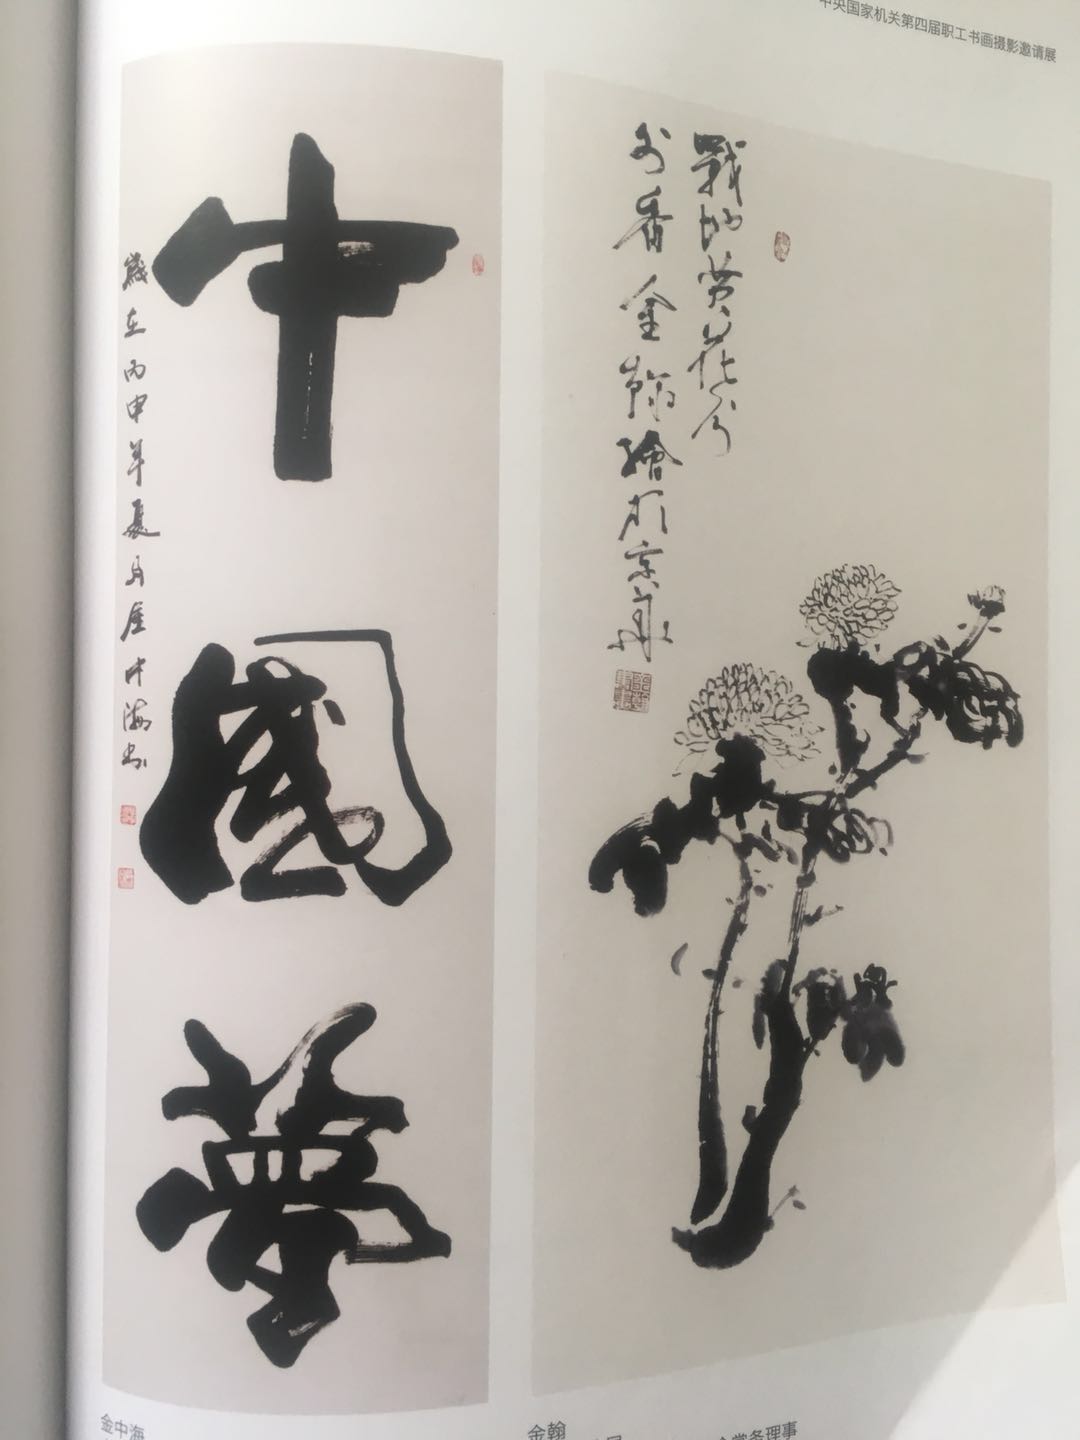 中央国家机关第四届职工书画摄影邀请展
中
國
夢
歲在丙申年夏月金中海书
戰地黄花分
外香金翰繪於京華
金中海
金翰
常务理事